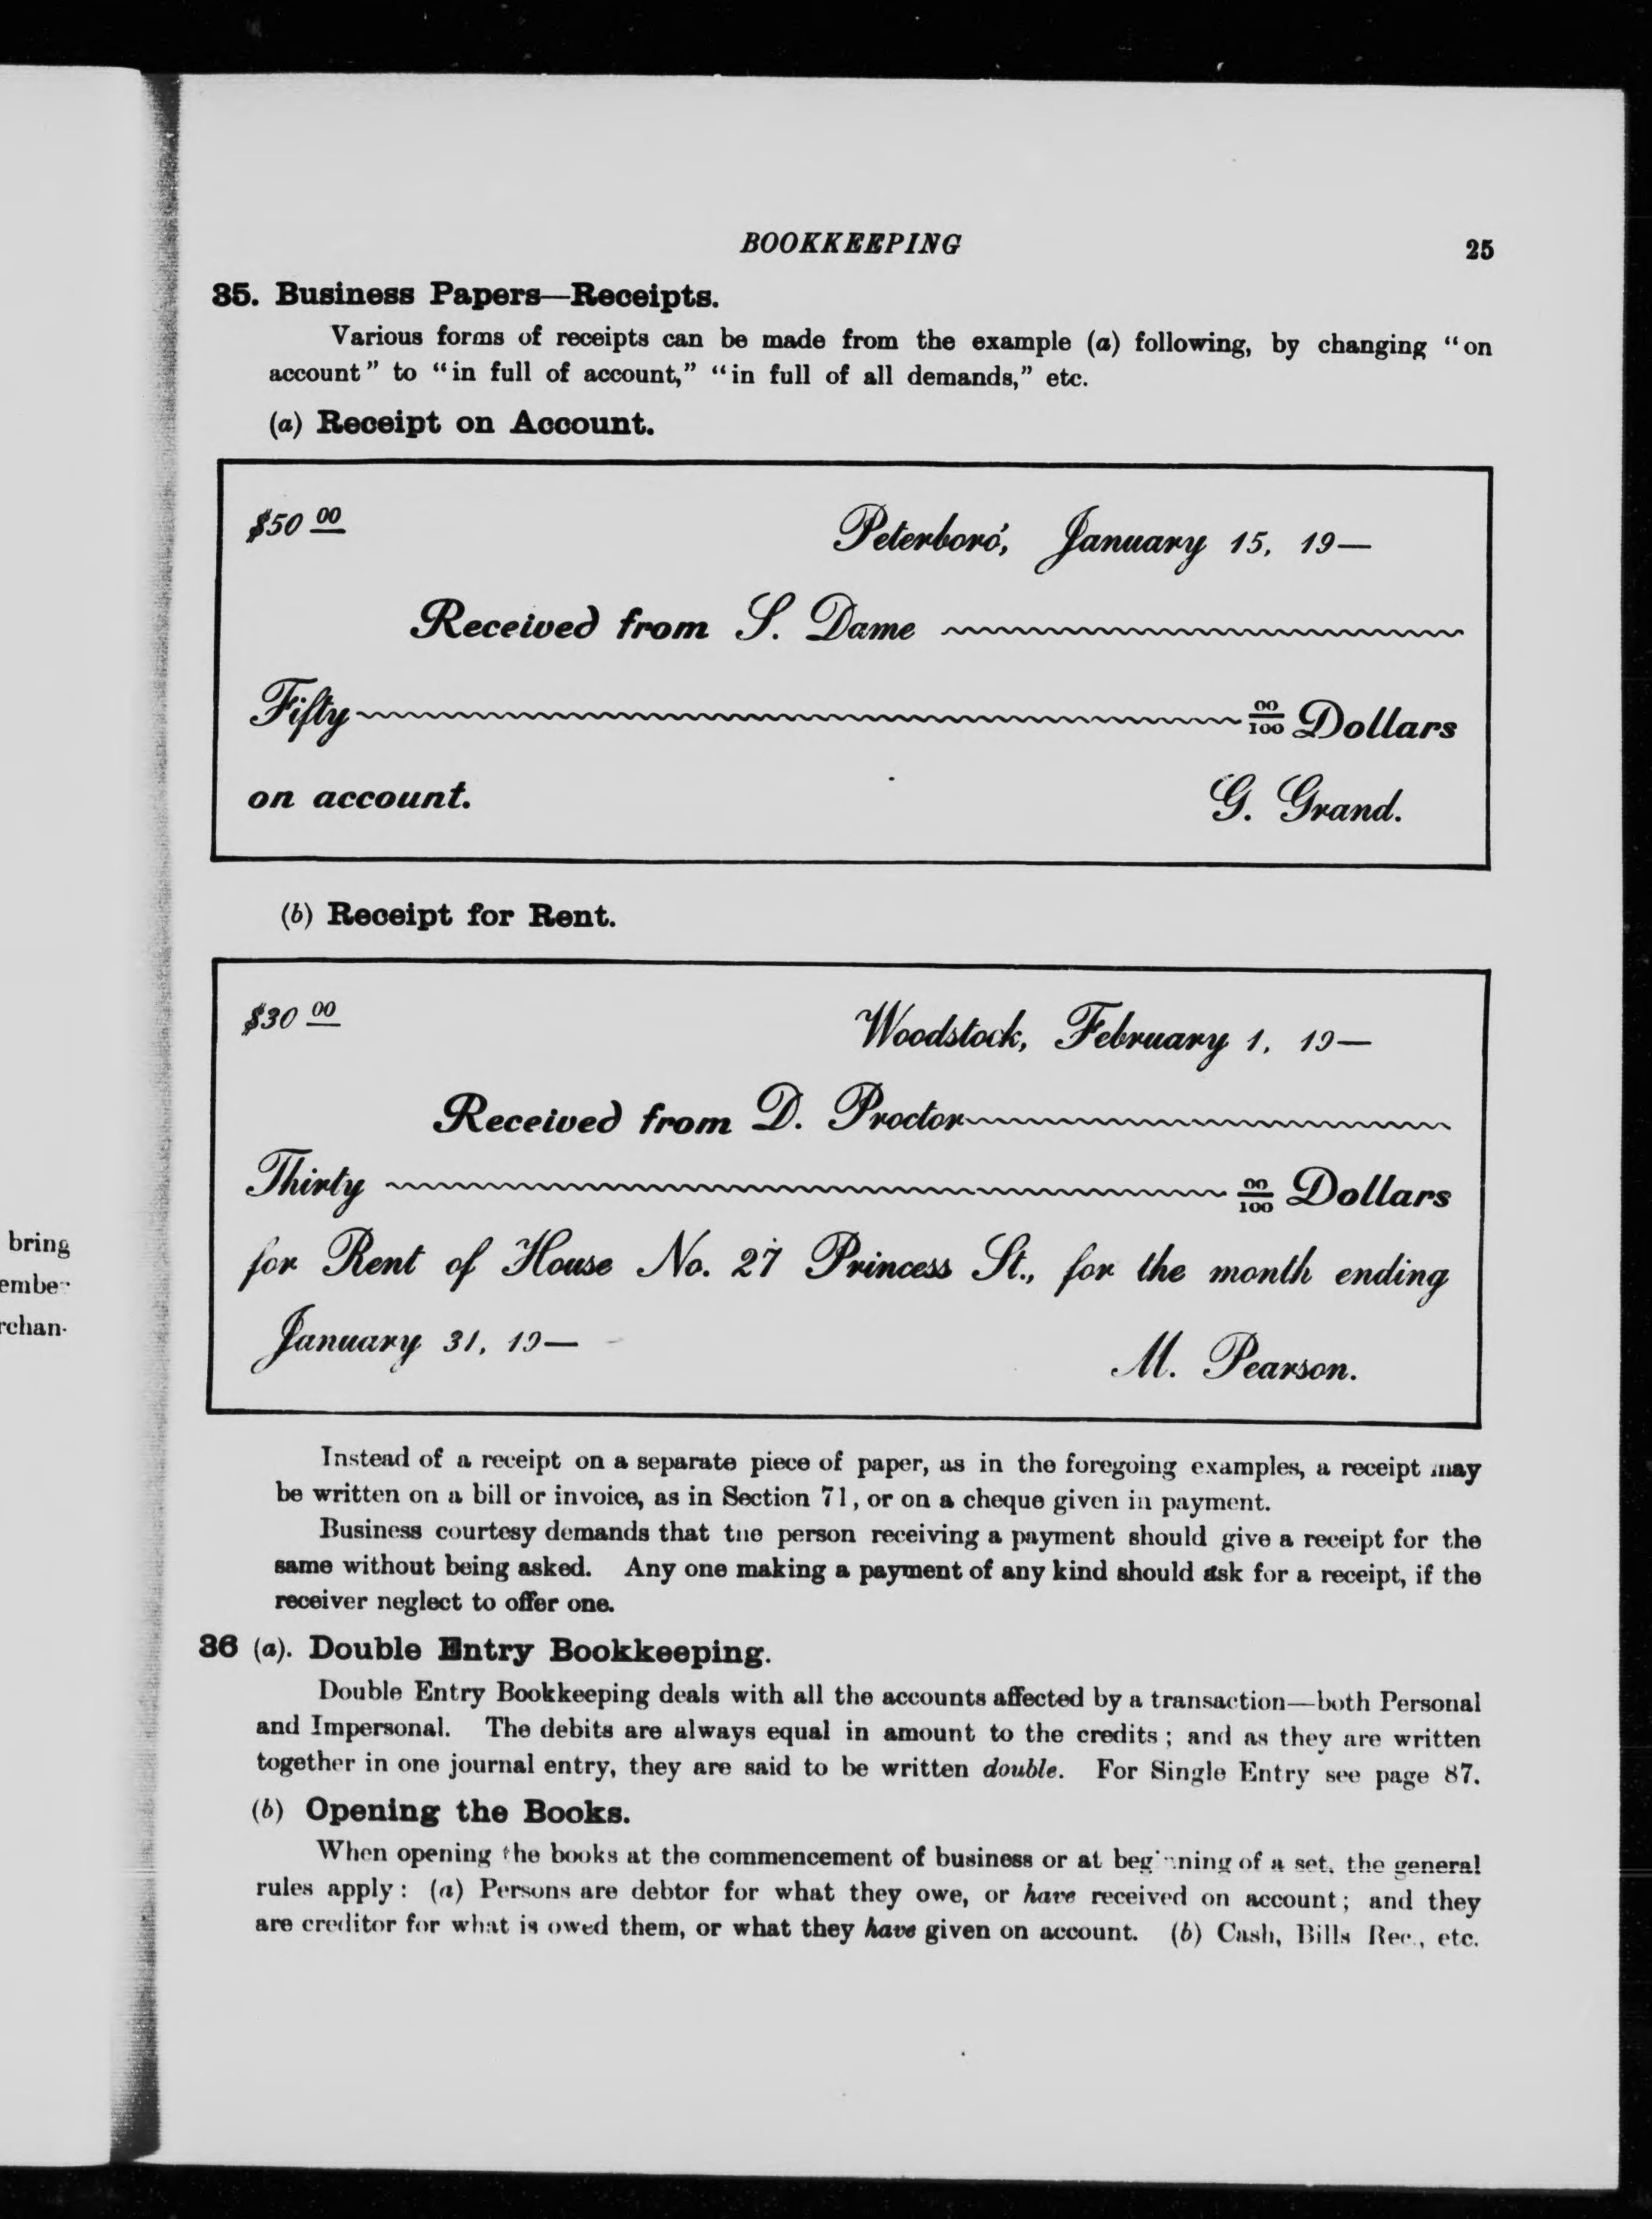 BOOKKEEPING 25
35. Business Papers—Receipts.
Various forms of receipts can be made from the example (a) following, by changing "on
account" to "in full of account," "in full of all demands," etc.
(a) Receipt on Account.
$50 00
Peterboro', January 15, 19—
Received from S. Dame
Fifty 00/100 Dollars
on account. G. Grand.
(b) Receipt for Rent.
$30 00
Woodstock, February 1, 19—
Received from D. Proctor
Thirty 00/100 Dollars
for Rent of House No. 27 Princess St., for the month ending
January 31, 19—
M. Pearson.
bring
Instead of a receipt on a separate piece of paper, as in the foregoing examples, a receipt may
be written on a bill or invoice, as in Section 71, or on a cheque given in payment.
Business courtesy demands that the person receiving a payment should give a receipt for the
same without being asked. Any one making a payment of any kind should ask for a receipt, if the
receiver neglect to offer one.
36 (a). Double Entry Bookkeeping.
Double Entry Bookkeeping deals with all the accounts affected by a transaction—both Personal
and Impersonal. The debits are always equal in amount to the credits; and as they are written
together in one journal entry, they are said to be written double. For Single Entry see page 87.
(b) Opening the Books.
When opening the books at the commencement of business or at beginning of a set, the general
rules apply: (a) Persons are debtor for what they owe, or have received on account; and they
are creditor for what is owed them, or what they have given on account. (b) Cash, Bills Rec., etc.